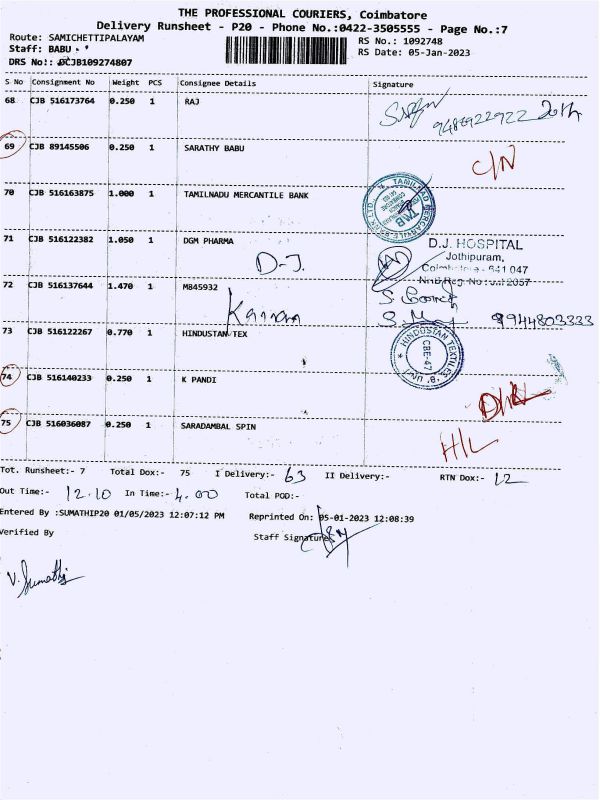 THE PROFESSIONAL COURIERS, Coimbatore
Delivery Runsheet - P20 - Phone No.:0422-3505555 - Page No.:7
Route: SAMICHETTIPALAYAM
RS No.: 1092748
Staff: BABU
RS Date: 05-Jan-2023
DRS No:: CJB109274807
S No Consignment No Weight PCS Consignee Details Signature
68 CJB 516173764 0.250 1 RAJ
69 CJB 89145506 0.250 1 SARATHY BABU
C/N
70 CJB 516163875 1.000 1 TAMILNADU MERCANTILE BANK
TAMILNAD MERCANTILE BANK LTD.
TMB
71 CJB 516122382 1.050 1 DGM PHARMA
D-J.
D.J. HOSPITAL
Jothipuram,
Coimbatore - 641 047
72 CJB 516137644 1.470 1 MB45932
Kannan
9944803333
73 CJB 516122267 0.770 1 HINDUSTAN TEX
HINDUSTAN TEXTILES
CBE-47
74 CJB 516140233 0.250 1 K PANDI
75 CJB 516036087 0.250 1 SARADAMBAL SPIN
H/L
Tot. Runsheet:- 7 Total Dox:- 75 I Delivery:- 63 II Delivery:- RTN Dox:- 12
Out Time:- 12.10 In Time:- 4.00 Total POD:-
Entered By :SUMATHIP20 01/05/2023 12:07:12 PM Reprinted On: 05-01-2023 12:08:39
Verified By Staff Signature
V. Sumathi